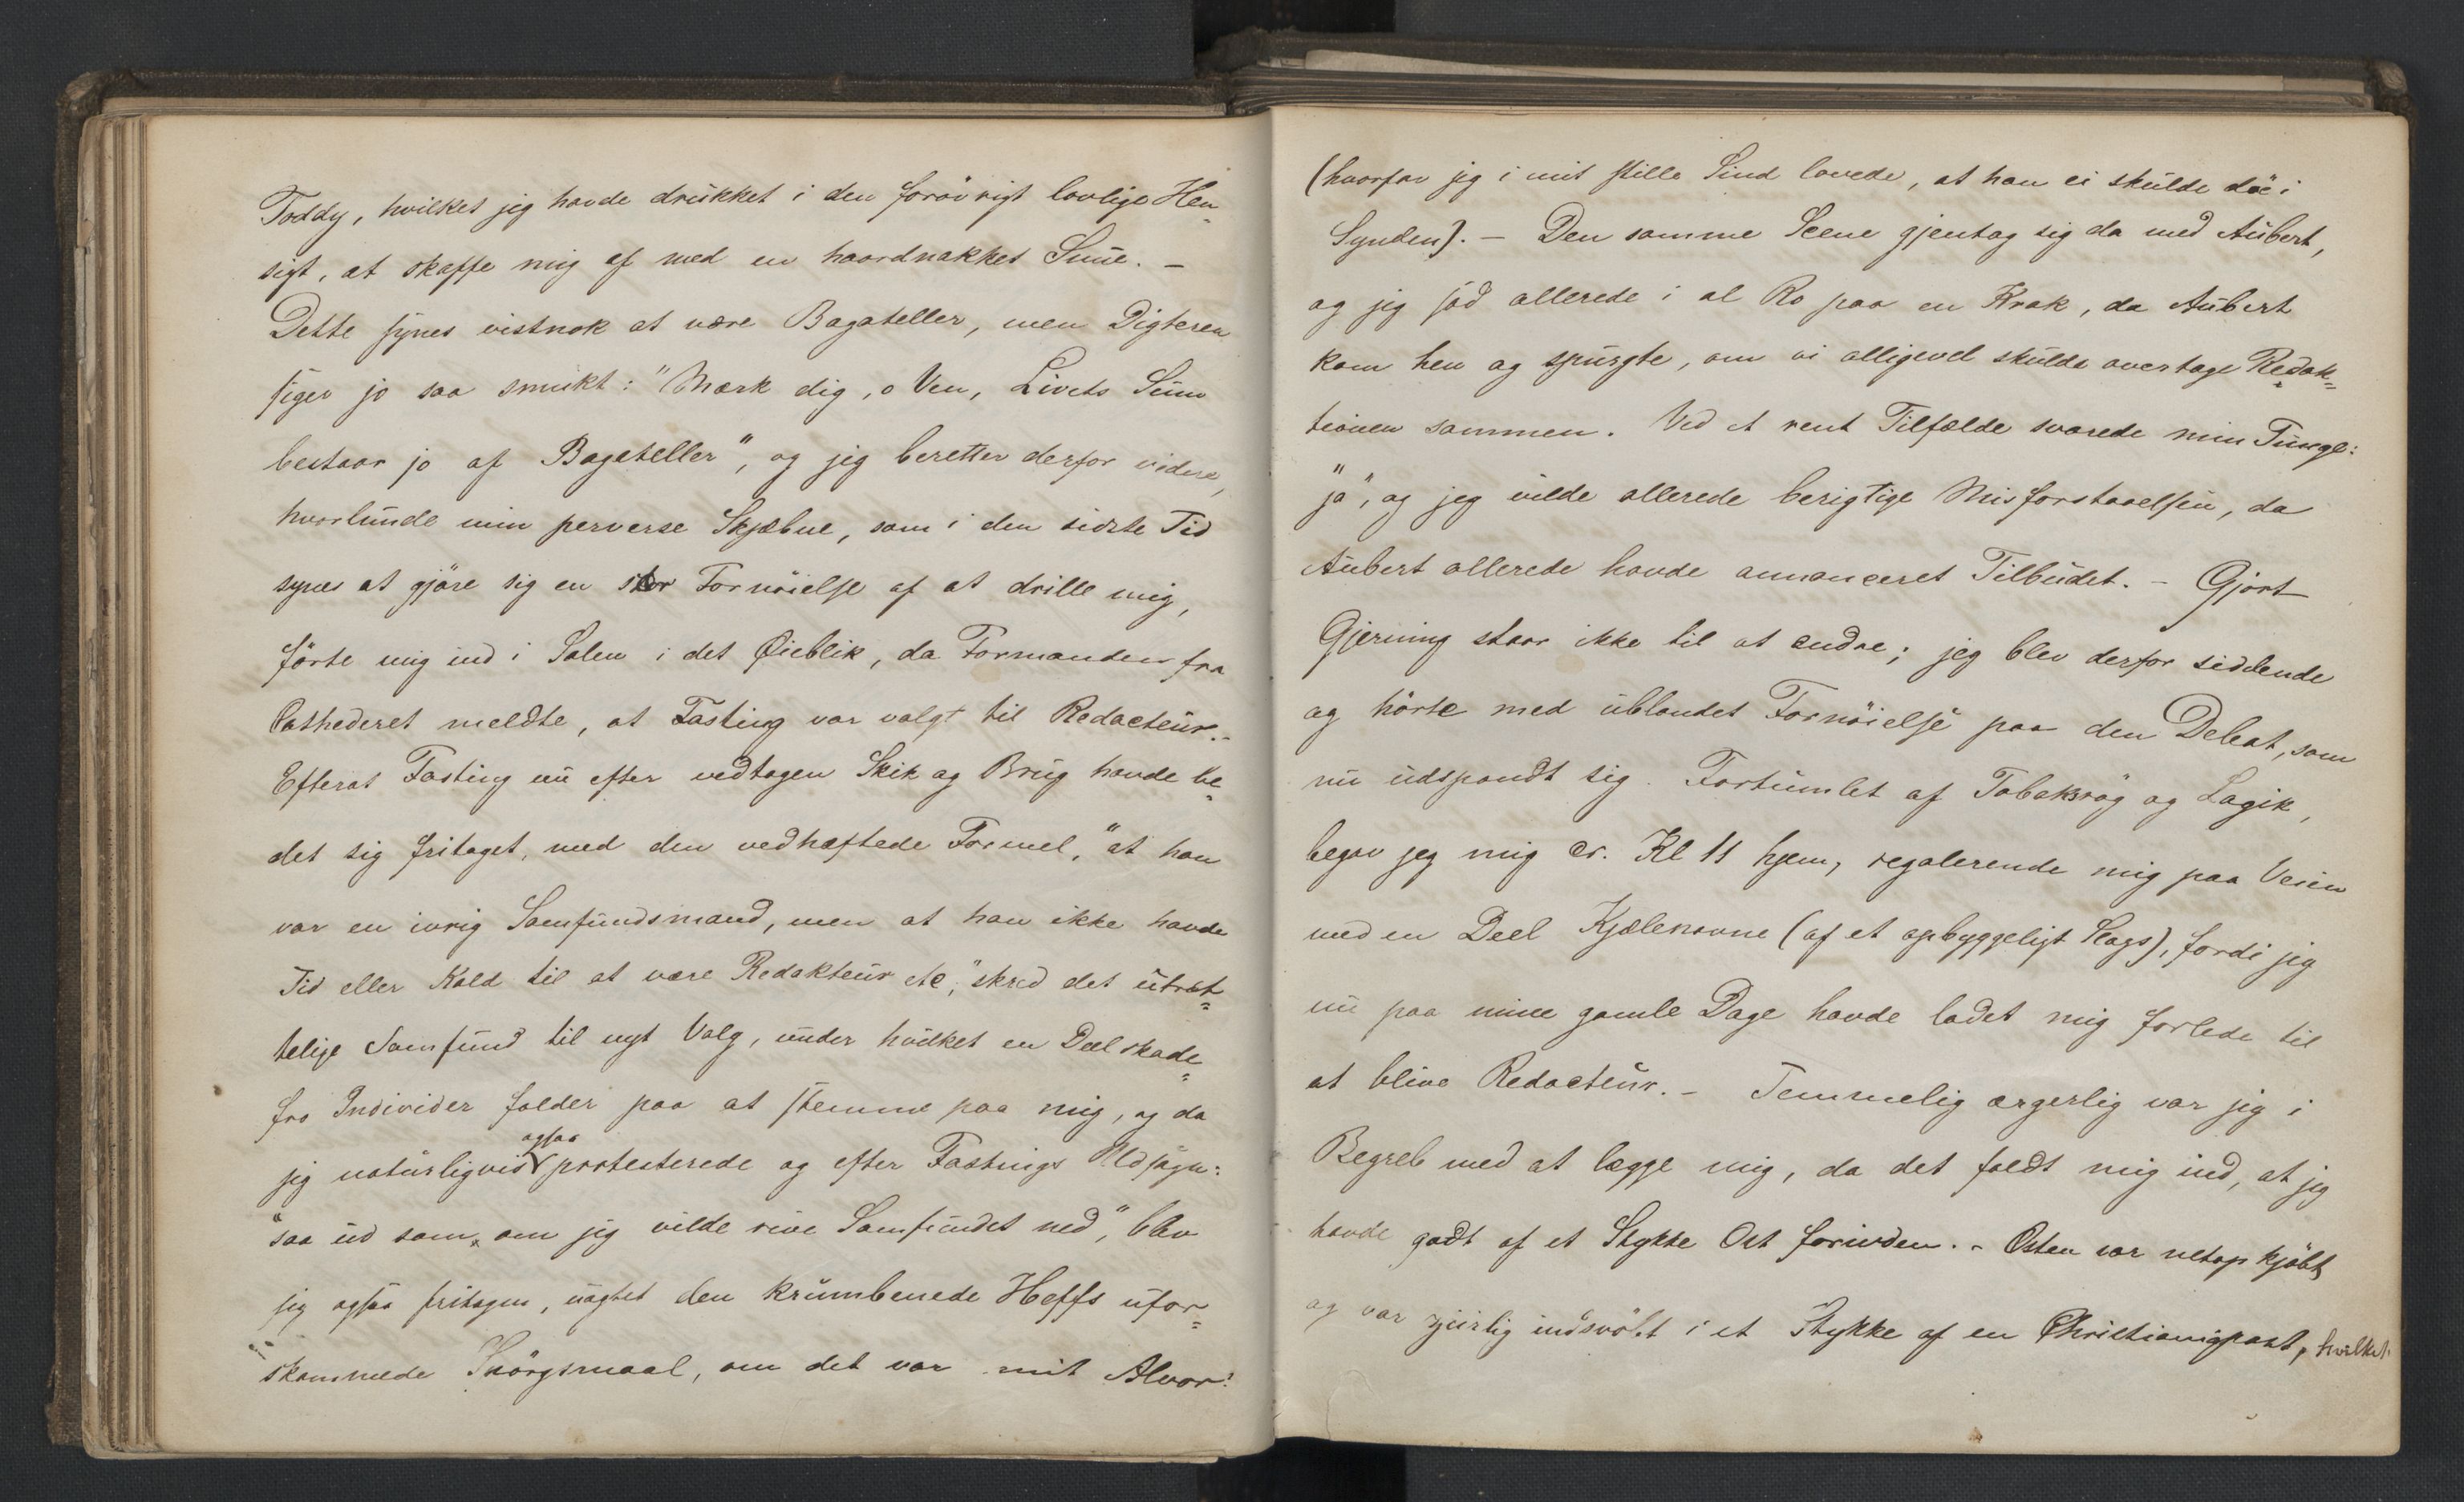 Toddy, hvilket jeg havde drukket i den forövrigt lovlige Hen-
sigt, at skaffe mig af med en haardnakket Snue. –
Dette synes vistnok at være Bagateller, men Digteren
siger jo saa smukt: "Mærk dig, o Ven, Livets Sum
bestaar jo af Bagateller", og jeg beretter derfor videre,
hvorlunde min perverse Skjæbne, som i den sidste Tid
synes at gjöre sig en stor Fornöielse af at drille mig,
förte mig ind i Salen i det Øieblik, da Formanden fra
Cathederet meldte, at Fasting var valgt til Redacteur. -
Efterat Fasting nu efter vedtagen Skik og Brug havde be-
det sig fritaget, med den vedhæftede Formel, "at han
var en ivrig Samfundsmand, men at han ikke havde
Tid eller Kald til at være Redakteur etc," skred det utræt-
telige Samfund til nyt Valg, under hvilket en Deel skade-
fro Individer falder paa at stemme paa mig, og da
jeg naturligvis ogsaa protesterede og efter Fastings Udsagn:
"saa ud som, om jeg vilde rive Samfundet ned", blev
jeg ogsaa fritagen, uagtet den krumbenede Heffs ufor-
skammede Spörgsmaal, om det var mit Alvor!
(hvorfor jeg i mit stille Sind lovede, at han ei skulde döe i
Synden). – Den samme Scene gjentog sig da med Aubert,
og jeg sad allerede i al Ro paa en Krak, da Aubert
kom hen og spurgte, om vi alligevel skulde overtage Redak-
tionen sammen. Ved et rent Tilfælde svarede min Tunge:
"ja", og jeg vilde allerede berigtige Misforstaaelsen, da
Aubert allerede havde annonceret Tilbudet. – Gjort
Gjerning staar ikke til at ændre; jeg blev derfor siddende
og hörte med ublandet Fornöielse paa den Debat, som
nu udspandt sig. Fortumlet af Tobaksrög og Logik,
begav jeg mig cr. Kl 11 hjem, regalerende mig paa Veien
med en Deel Kjælenavne (af et opbyggeligt Slags), fordi jeg
nu paa mine gamle Dage havde ladet mig forlede til
at blive Redacteur. – Temmelig ærgerlig var jeg i
Begreb med at lægge mig, da det faldt mig ind, at jeg
havde godt af et Stykke Ost forinden. - Osten var netop kjöbt
og var zirlig indsvöbt i et Stykke af en Christianiapost, hvilket